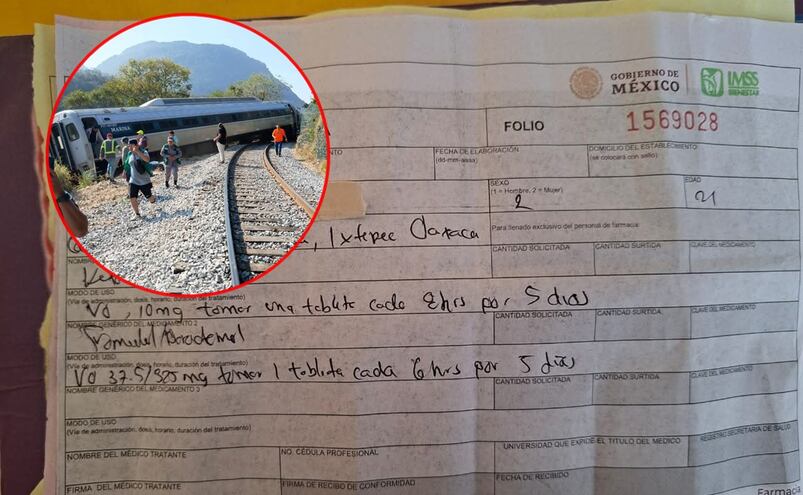 MARINA
GOBIERNO DE
MÉXICO
IMSS
BIENESTAR
FOLIO
1569028
FECHA DE ELABORACIÓN
(dd-mm-aaaa)
DOMICILIO DEL ESTABLECIMIENTO
(se colocará con sello)
SEXO
(1 = Hombre, 2 = Mujer)
2
EDAD
21
, Ixtepec Oaxaca
Para llenado exclusivo del personal de farmacia:
CANTIDAD SOLICITADA
CANTIDAD SURTIDA
CLAVE DEL MEDICAMENTO
MODO DE USO
(Vía de administración, dosis, horario, duración del tratamiento)
VO, 10mg tomar una tableta cada 8hrs por 5 dias
NOMBRE GENÉRICO DEL MEDICAMENTO 2
CANTIDAD SOLICITADA
CANTIDAD SURTIDA
CLAVE DEL MEDICAMENTO
MODO DE USO
(Vía de administración, dosis, horario, duración del tratamiento)
VO 37.5/325mg tomar 1 tableta cada 6 hrs por 5 dias
NOMBRE GENÉRICO DEL MEDICAMENTO 3
CANTIDAD SOLICITADA
CANTIDAD SURTIDA
CLAVE DEL MEDICAMENTO
MODO DE USO
(Vía de administración, dosis, horario, duración del tratamiento)
NOMBRE DEL MÉDICO TRATANTE
NO. CÉDULA PROFESIONAL
UNIVERSIDAD QUE EXPIDE EL TITULO DEL MÉDICO
REGISTRO SECRETARIA DE SALUD
FIRMA DEL MÉDICO TRATANTE
FIRMA DE RECIBO DE CONFORMIDAD
FECHA DE RECIBIDO
Farmacia